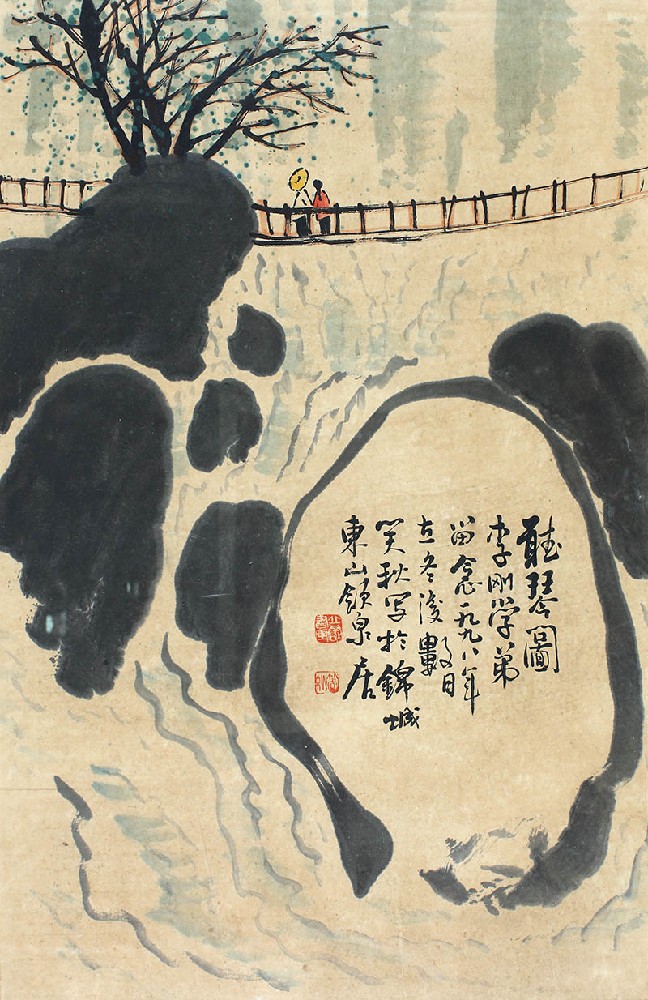 聽琴圖
李剛学弟
留念一九九八年
立冬後数日
秋写於錦城
東山飲泉居